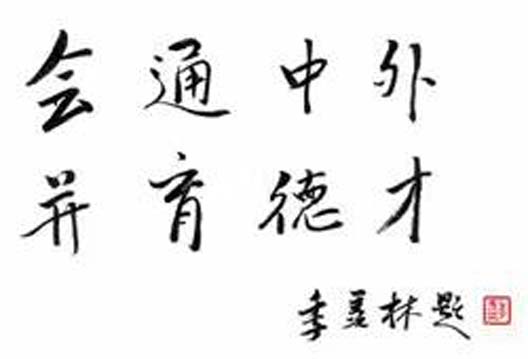 会通中外
并育德才
季羡林题